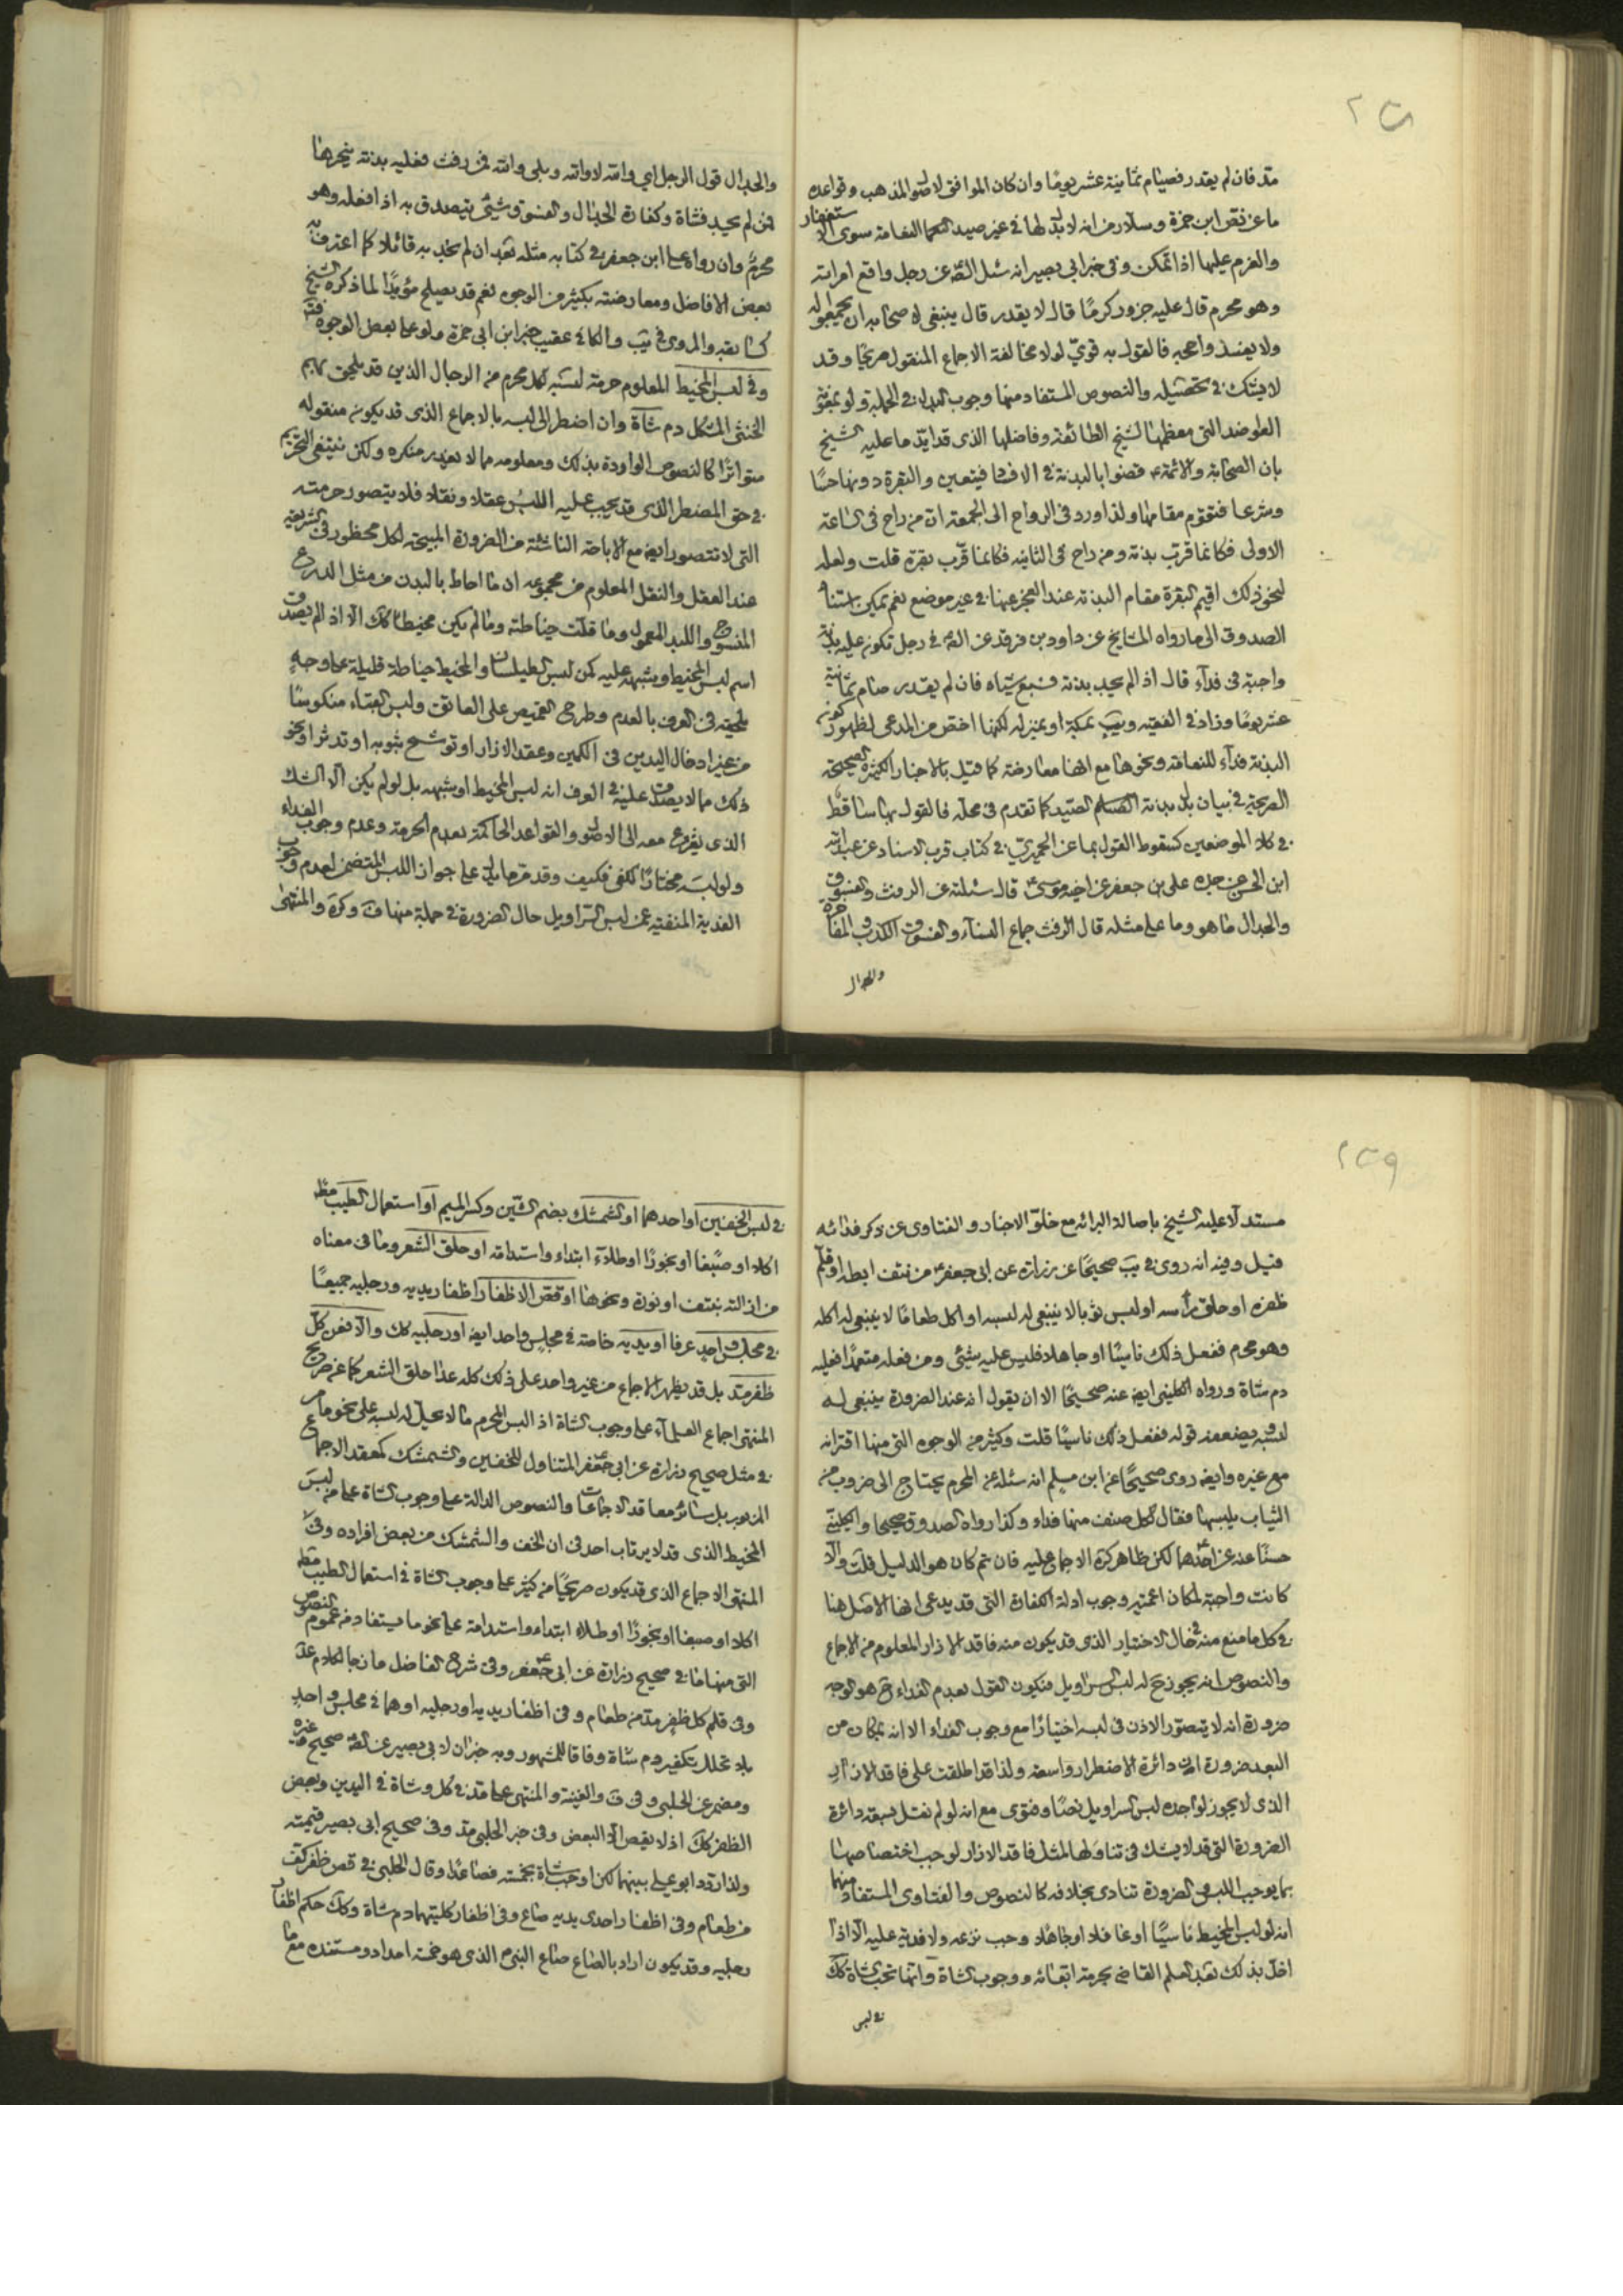 مد فان لم يقدر فصيام ثمانية عشر يومًا وان كان الموافق لاصول المذهب وقواعده
ما عن ابن حمزة وسلار من انه لا بدل لها في غير صيد النعامة سوى الاستغفار
والعزم عليها اذا تمكن وفي خبر ابي بصير انه سئل الصم عن رجل واقع امرأته
وهو محرم قال عليه جزور كرمًا قال لا يقدر قال ينبغي لاصحابه ان يجمعوا له
ولا يفسد واحجه فالقول به قويّ لولا مخالفة الاجماع المنقول صريحًا وقد
لا يشك في تحصيله والنصوص المستفاد منها وجوب البدل في الجملة ولو بمعونة
الفاضل التي معظمها لشيخ الطائفة وفاضلها الذي قد ايد ما عليه الشيخ
بان الصحابة والائمة ع قضوا بالبدنة في الافساد فيتعين والبقرة دونها حسًا
وشرعا فتقوم مقامها ولذا ورد في الرواح الى الجمعة ان من راح في الساعة
الاولى فكانما قرب بدنة ومن راح في الثانيه فكانما قرّب بقرة قلت ولعله
لنحو ذلك اقيم البقرة مقام البدنة عند العجز عنها في غير موضع نعم يمكن استناد
الصدوق الى ما رواه المشايخ عن داود بن فرقد عن الصم في رجل تكون عليه بدنة
واجبة في فدآء قال اذا لم يجد بدنة فسبع شياه فان لم يقدر صام ثمانية
عشر يومًا وزاد في الفقيه ويب بمكة او بمنزله لكنها اخص من المدعى لظهور كونه
البدنة فدآء للنعامة ونحوها مع انها معارضة كما قيل بالاخبار الكثيرة الصحيحة
الصريحة في بيان بدل بدنة الصيد كما تقدم في محله فالقول بها ساقط
في كلا الموضعين كسقوط القول بما عن الحميري في كتاب قرب الاسناد عن عبد الله
ابن الحسن عن جده علي بن جعفر عن اخيه موسى ع قال سئلته عن الرفث والفسوق
والجدال ما هو وما على مثله قال الرفث جماع النساء والفسوق الكذب والمفاخرة
والجدال
والجدال قول الرجل اي والله لا والله وبلى والله فمن رفث فعليه بدنة ينحرها
فمن لم يجد فشاة وكفارة الجدال والفسوق شيئ يتصدق به اذا فعله وهو
محرم وان رواه علي ابن جعفر في كتابه مثله بعد ان لم نجد به قائلا كما اعترف به
بعض الافاضل ومعارضته بكثير من الوجوه نعم قد يصلح مؤيدًا لما ذكره الشيخ
كسابقه والمروي في يب والكافي عقيب خبر ابن ابي حمزة ولو على بعض الوجوه فتأ
وفي لبس المخيط المعلوم حرمة لبسه لكل محرم من الرجال الذين قد يلحق بهم
الخنثى المشكل دم شاة وان اضطر الى لبسه بالاجماع الذي قد يكون منقوله
متواترًا كالنصوص الواردة بذلك ومعلومه مما لا يعذر منكره ولكن ينتفي التحريم
في حق المضطر الذي قد يجب عليه اللبس عقلا ونقلا فلا يتصور حرمته
التي لا تتصور ايضا مع الاباحة الناشئة من الضرورة المبيحة لكل محظور في الشريعة
عند العقل والنقل المعلوم من مجموعه ان ما احاط بالبدن من مثل الدرع
المنسوج واللبد المعمول وما قلت خياطته وما لم يكن مخيطا كك الا اذا لم يصدق
اسم لبس المخيط وشبهه عليه كمن لبس الطيلسان والمخيط خياطة قليلة على وجه
يلحقه في العرف بالعدم وطرح القميص على العاتق ولبس القباء منكوسًا
من غير ادخال اليدين في الكمين وعقد الازار او توشح بثوبه او تدثر او نحو
ذلك مما لا يصدق عليه في العرف انه لبس المخيط او شبهه بل لو لم يكن الا الشك
الذي يشرع معه الى الاصول والقواعد الحاكمة بعدم الحرمة وعدم وجوب الفداء
ولو لبسه مختارًا لكفى فكيف وقد مر ما يدل على جواز اللبس المتضمن لعدم وجوب
الفدية المنفية عمن لبس السراويل حال الضرورة في جملة منها ف وكره والمنتهى
مستدلا عليه الشيخ باصالة البرائة مع خلو الاخبار والفتاوى عن ذكر فدائه
قيل وفيه انه روى في يب صحيحًا عن زرارة عن ابي جعفر ع من نتف ابطه او قلم
ظفره او حلق رأسه او لبس ثوبا لا ينبغي له لبسه او اكل طعامًا لا ينبغي له اكله
وهو محرم ففعل ذلك ناسيًا او جاهلا فليس عليه شيئ ومن فعله متعمدًا فعليه
دم شاة ورواه الكليني ايضا عنه صحيحًا الا ان يقول انه عند الضرورة ينبغي له
لبسه ويضعفه قوله ففعل ذلك ناسيًا قلت وكثير من الوجوه التي منها اقترانه
مع غيره وايضا روى صحيحًا عن ابن مسلم انه سئله عن المحرم يحتاج الى ضروب من
الثياب يلبسها فقال لكل صنف منها فداء وكذا رواه الصدوق صحيحا والكليني
حسنًا عنه عن احدهما لكن ظاهر كره الاجماع عليه فان تم كان هو الدليل قلت والا
كانت واجبة لمكان اعمية وجوب ادلة الكفارة التي قد يدعى انها الاصل هنا
في كل ما منع منه في حال الاختيار الذي قد يكون منه فاقد الازار المعلوم من الاجماع
والنصوص انه يجوز ح له لبس السراويل فيكون القول بعدم الفداء ح هو الوجه
ضرورة انه لا يتصور الاذن في لبسه اختيارًا مع وجوب الفداء الا انه بمكان من
البعد ضرورة ان دائرة الاضطرار واسعة ولذا قد اطلقت على فاقد الازار
الذي لا يجوز لواجده لبس السراويل نصًا وفتوى مع انه لو لم نقل بسعة دائرة
الضرورة التي قد لا يشك في تناولها لمثل فاقد الازار لوجب اختصاصها
بما يوجب اللبس من الضرورة تنادى بخلافه كالنصوص والفتاوى المستفاد منها
انه لو لبس المخيط ناسيًا او غافلا او جاهلا وجب نزعه ولا فدية عليه الا اذا
اخل بذلك بعد العلم القاضي بحرمة ابقائه ووجوب الشاة وانها تجب شاة كك
في لبس
في لبس الخفين او احدهما او الشمشك بضم الشين وكسر الميم او استعمال الطيب مط
اكلا او صبغا او بخورًا او طلاء ابتداء واستدامة او حلق الشعر وما في معناه
من ازالته بنتف او نورة ونحوها او قص الاظفار اظفار يديه ورجليه جميعًا
في مجلس واحد عرفا او يديه خاصة في مجلس واحد ايضا او رجليه كك والا فعن كل
ظفر مد بل قد يظهر الاجماع من غير واحد على ذلك كله عدا حلق الشعر كما عن صريح
المنتهى اجماع العلماء على وجوب الشاة اذا لبس المحرم ما لا يحل له لبسه على نحو ما مر
في مثل صحيح زرارة عن ابي جعفر ع المتناول للخفين والشمشك كمعقد الاجماع
المزبور بل سائر معاقد الاجماعات والنصوص الدالة على وجوب الشاة على من لبس
المخيط الذي قد لا يرتاب احد في ان الخف والشمشك من بعض افراده وفي
المنتهى الاجماع الذي قد يكون صريحًا من كثير على وجوب الشاة في استعمال الطيب مط
اكلا او صبغا او بخورًا او طلاء ابتداء واستدامة على نحو ما يستفاد من عموم النصوص
التي منها ما في صحيح زرارة عن ابي جعفر ع وفي شرح الفاضل مازجا لكلام عد
وفي قلم كل ظفر مد من طعام وفي اظفار يديه او رجليه او هما في مجلس واحد
بلا تخلل تكفير دم شاة وفاقا للمشهور وبه خبران لابي بصير عن الصم صحيح وغيره
ومضمر عن الحلبي وفي ف والغنية والمنتهى على مد في كل وشاة في اليدين وبعض
الظفر كك اذ لا يقص الا البعض وفي خبر الحلبي مد وفي صحيح ابي بصير قيمته
ولذا ردد ابو علي بينهما لكن اوجب شاة بخمسة فصاعدًا وقال الحلبي في قص ظفر كف
من طعام وفي اظفار احدى يديه صاع وفي اظفار كلتيهما دم شاة وكك حكم اظفار
رجليه وقد يكون اراد بالصاع صاع النبي ص الذي هو خمسة امداد ومستنده مع ما